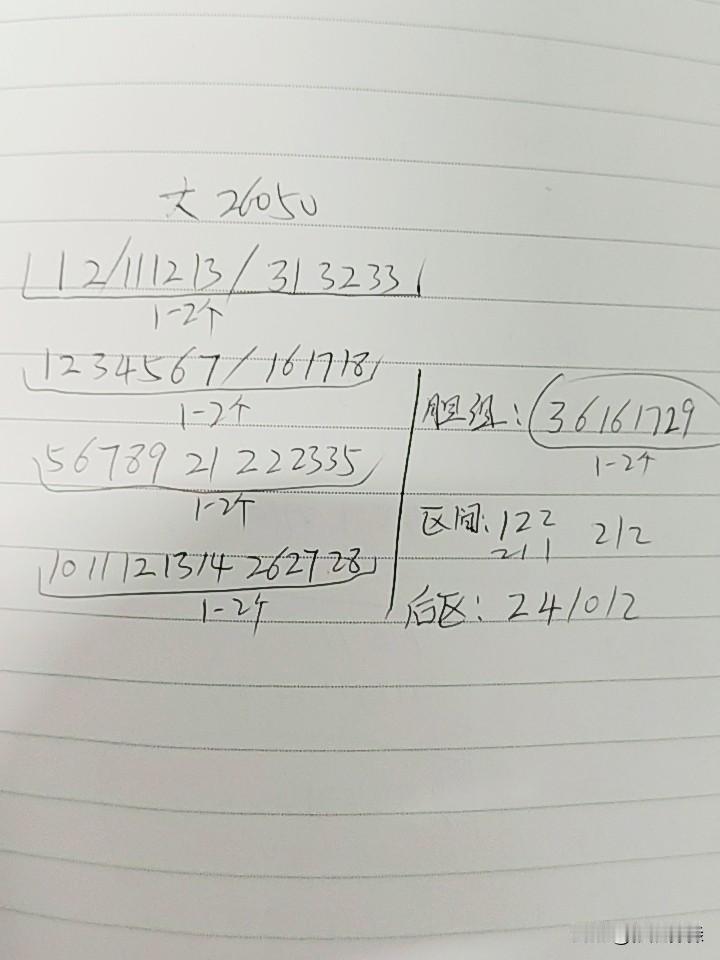 大 26050
1 2/11 12 13/31 32 33
1-2个
1 2 3 4 5 6 7/16 17 18
1-2个
5 6 7 8 9 21 22 23 35
1-2个
10 11 12 13 14 26 27 28
1-2个
胆组:3 6 16 17 29
1-2个
区间:122 212
211
后区:2 4 10 12